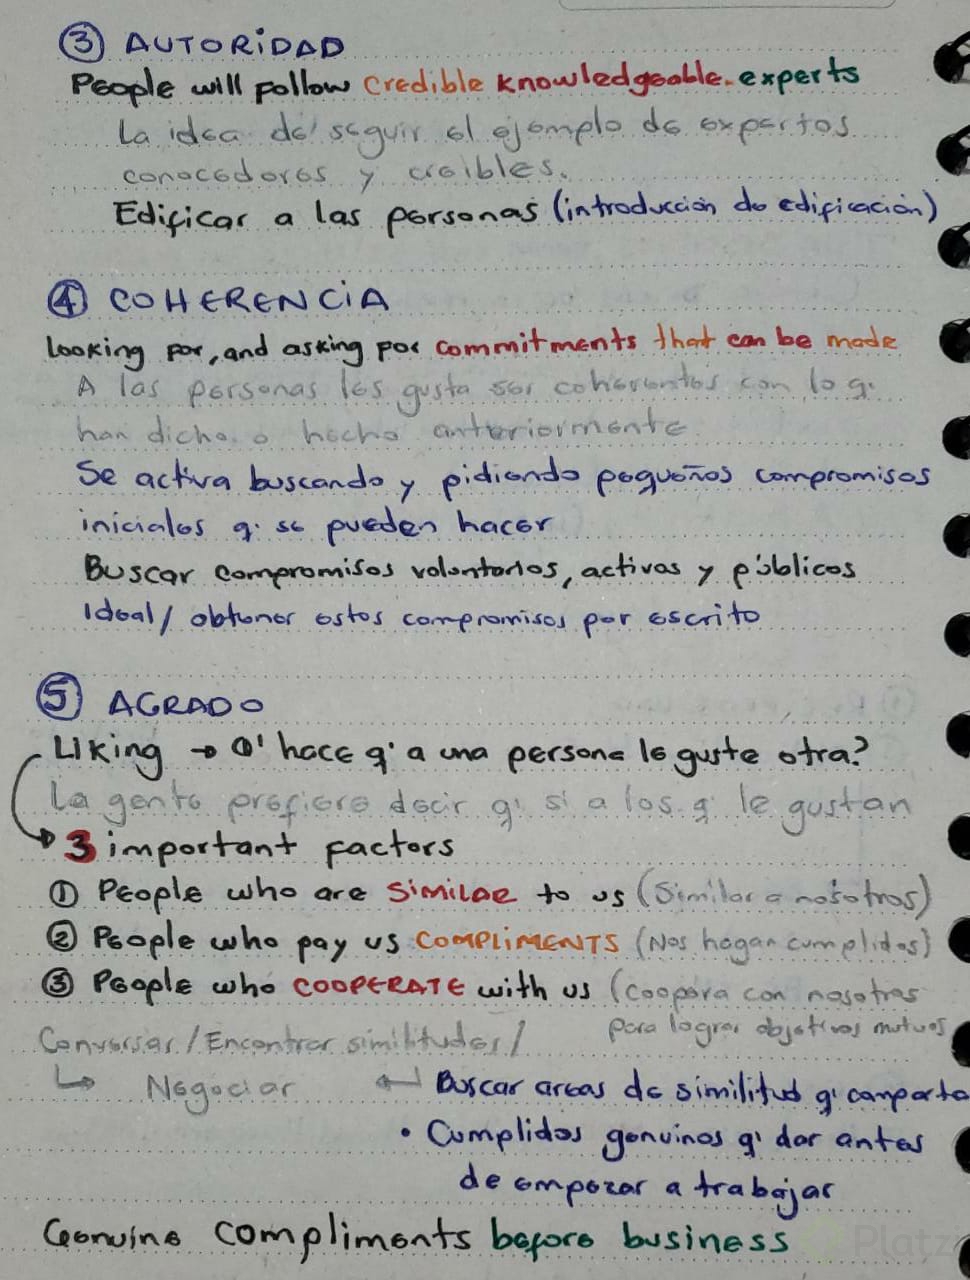 ③ AUTORIDAD
People will follow credible knowledgeable experts
La idea de seguir el ejemplo de expertos
conocedores y creibles.
Edificar a las personas (introducción de edificación)
④ COHERENCIA
Looking for, and asking for commitments that can be made
A las personas les gusta ser coherentes con lo q'
han dicho o hecho anteriormente
Se activa buscando y pidiendo pequeños compromisos
iniciales q' se pueden hacer
Buscar compromisos voluntarios, activos y públicos
Ideal/ obtener estos compromisos por escrito
⑤ AGRADO
Liking → Q' hace q' a una persona le guste otra?
La gente prefiere decir q' si a los q' le gustan
3 important factors
① People who are similar to us (Similar a nosotros)
② People who pay us COMPLIMENTS (Nos hagan cumplidos)
③ People who COOPERATE with us (coopera con nosotros
para lograr objetivos mutuos
Conversar / Encontrar similitudes /
↳ Negociar ↵ Buscar areas de similitud q' comparto
• Cumplidos genuinos q' dar antes
de empezar a trabajar
Genuine compliments before business
Platzi